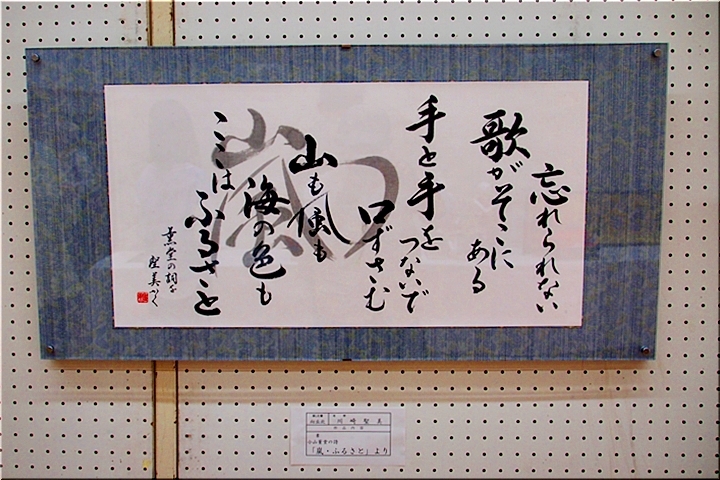 忘れられない
歌がそこに
ある
手と手を
つないで
口ずさむ
山も風も
海の色も
ここは
ふるさと
嵐
薫堂の詞を
聖美かく
川崎聖美
小山薫堂の詩
「嵐・ふるさと」より